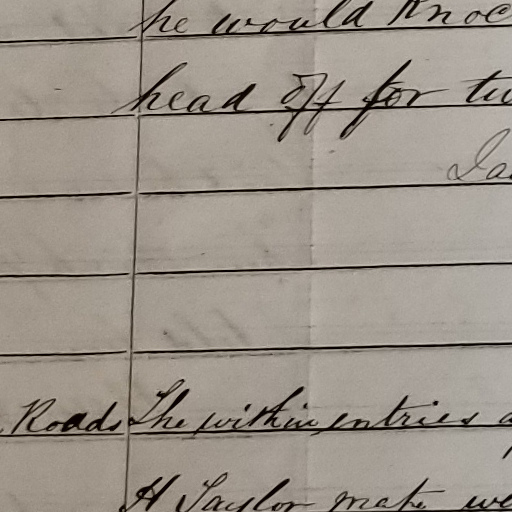 he would Knoc
head off for tw
Roads The within entries a
H Taylor mate we